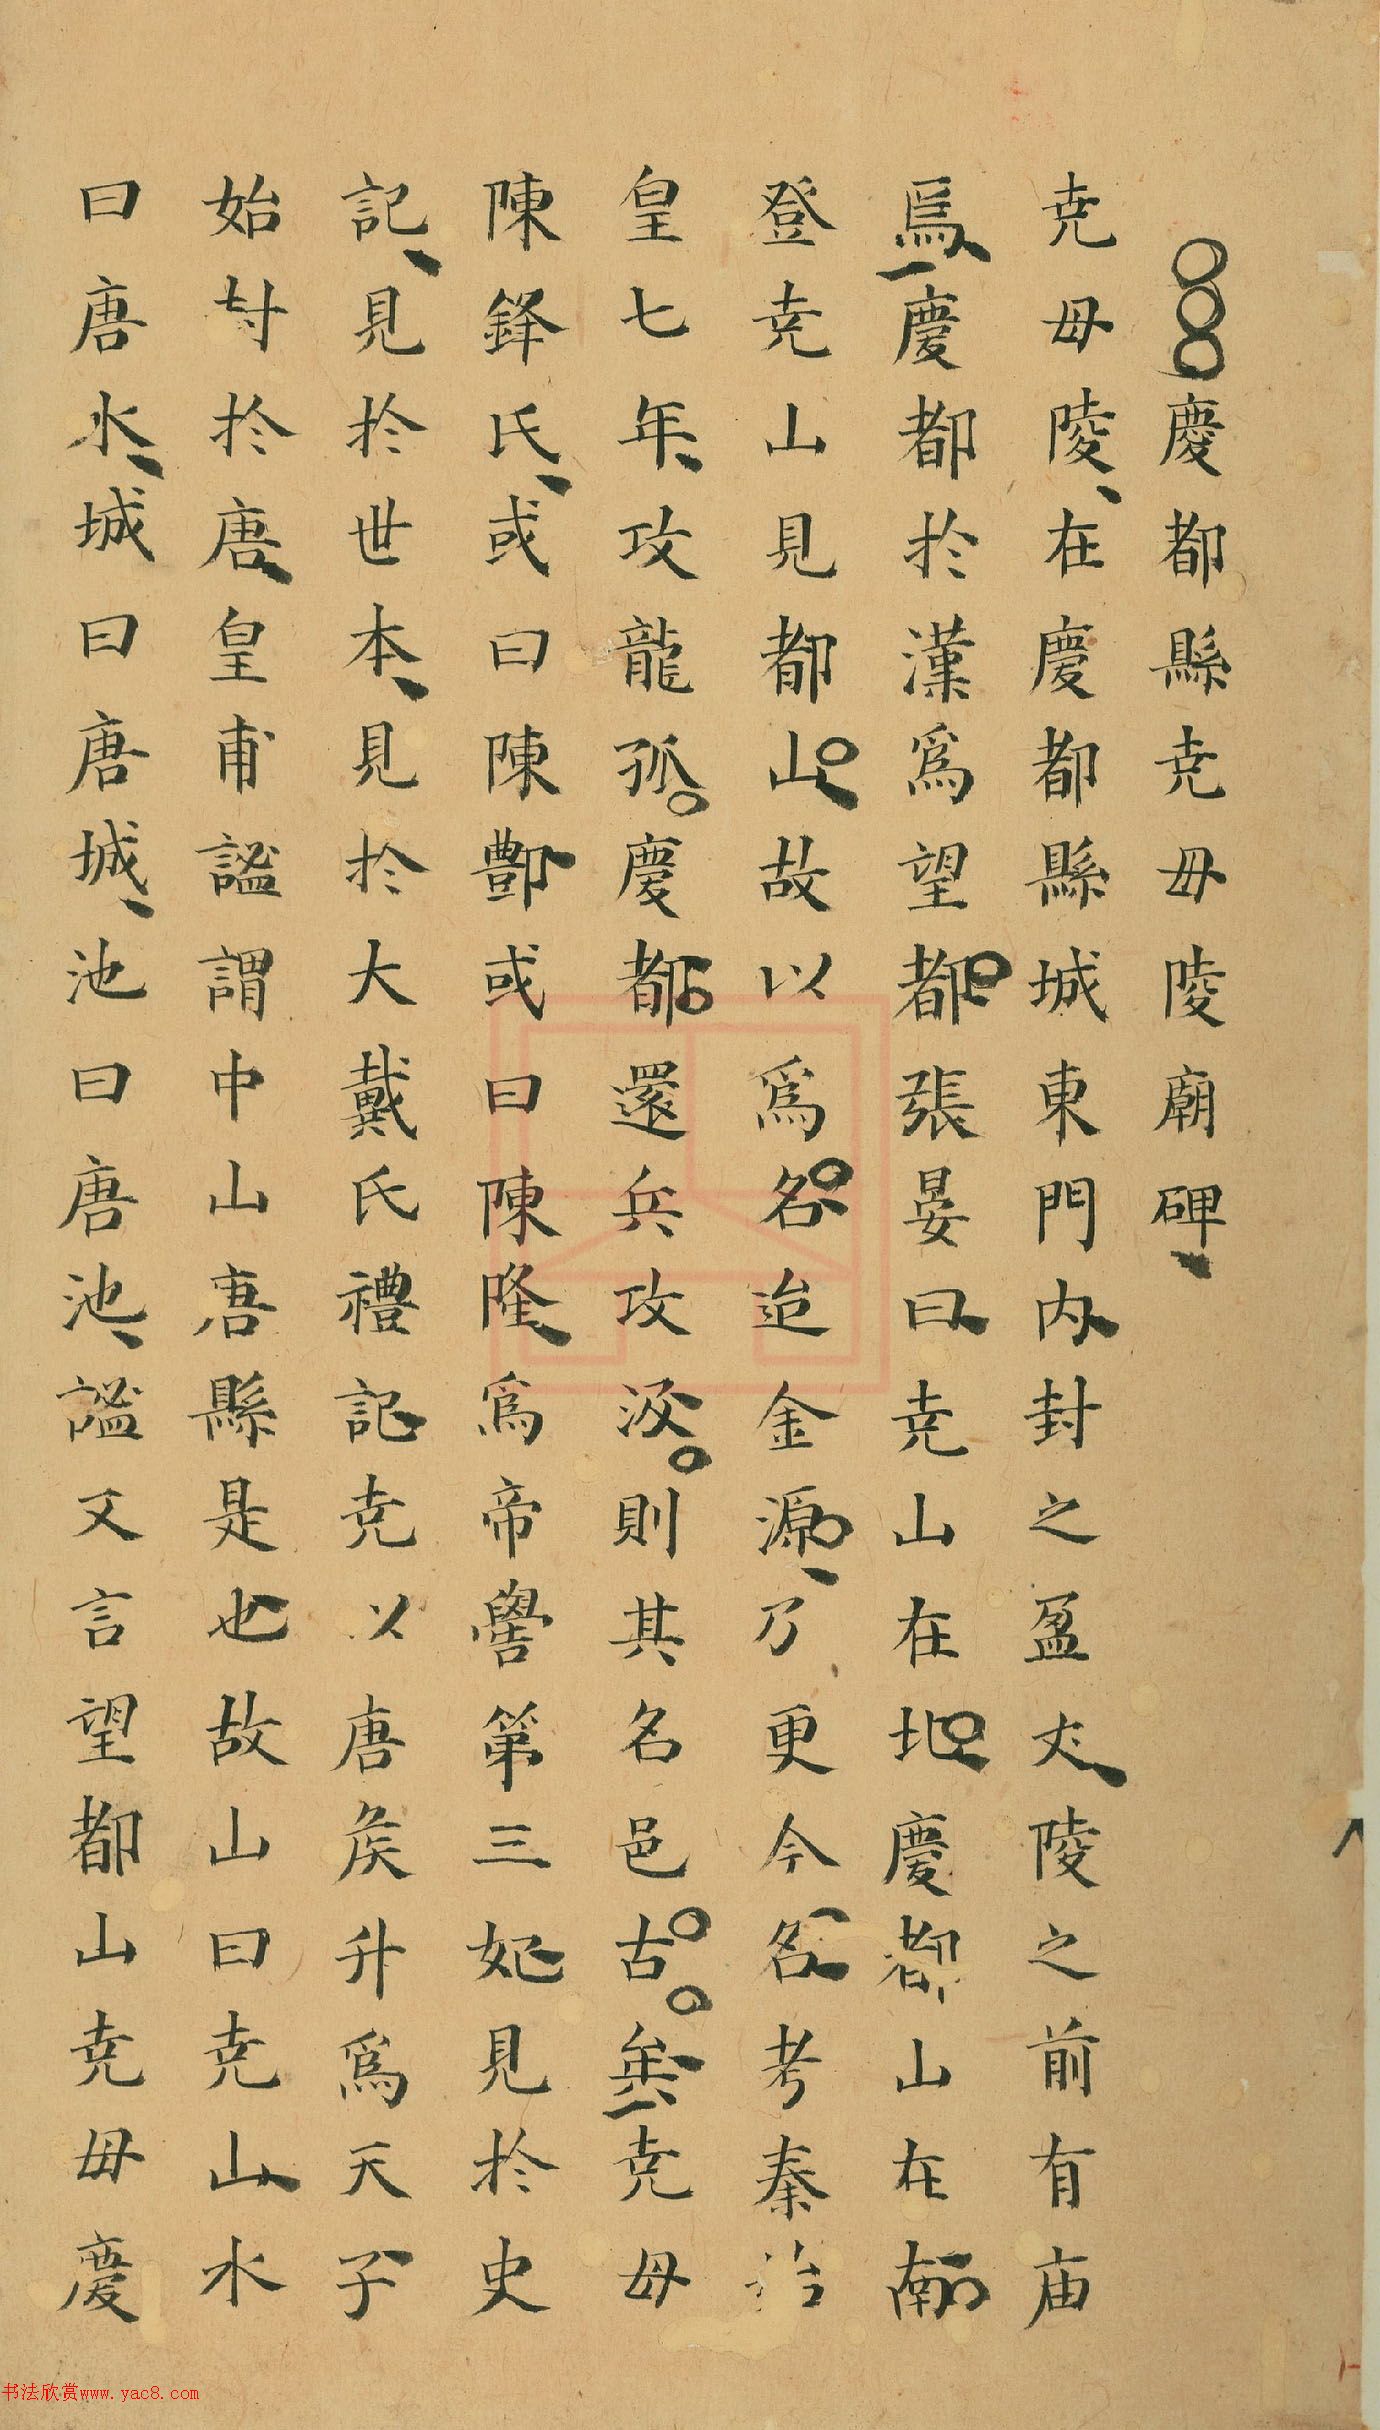 慶都縣尭母陵廟碑
尭母陵在慶都縣城東門内封之盈丈陵之前有庙
焉慶都於漢爲望都張晏曰尭山在北慶都山在南
登尭山見都山故以爲名迨金源乃更今名考秦始
皇七年攻龍孤慶都還兵攻汲則其名邑古矣尭母
陳鋒氏或曰陳酆或曰陳隆爲帝嚳第三妃見於史
記見於世本見於大戴氏禮記尭以唐矦升爲天子
始封於唐皇甫謐謂中山唐縣是也故山曰尭山水
曰唐水城曰唐城池曰唐池謐又言望都山尭母慶
书法欣赏www.yac8.com